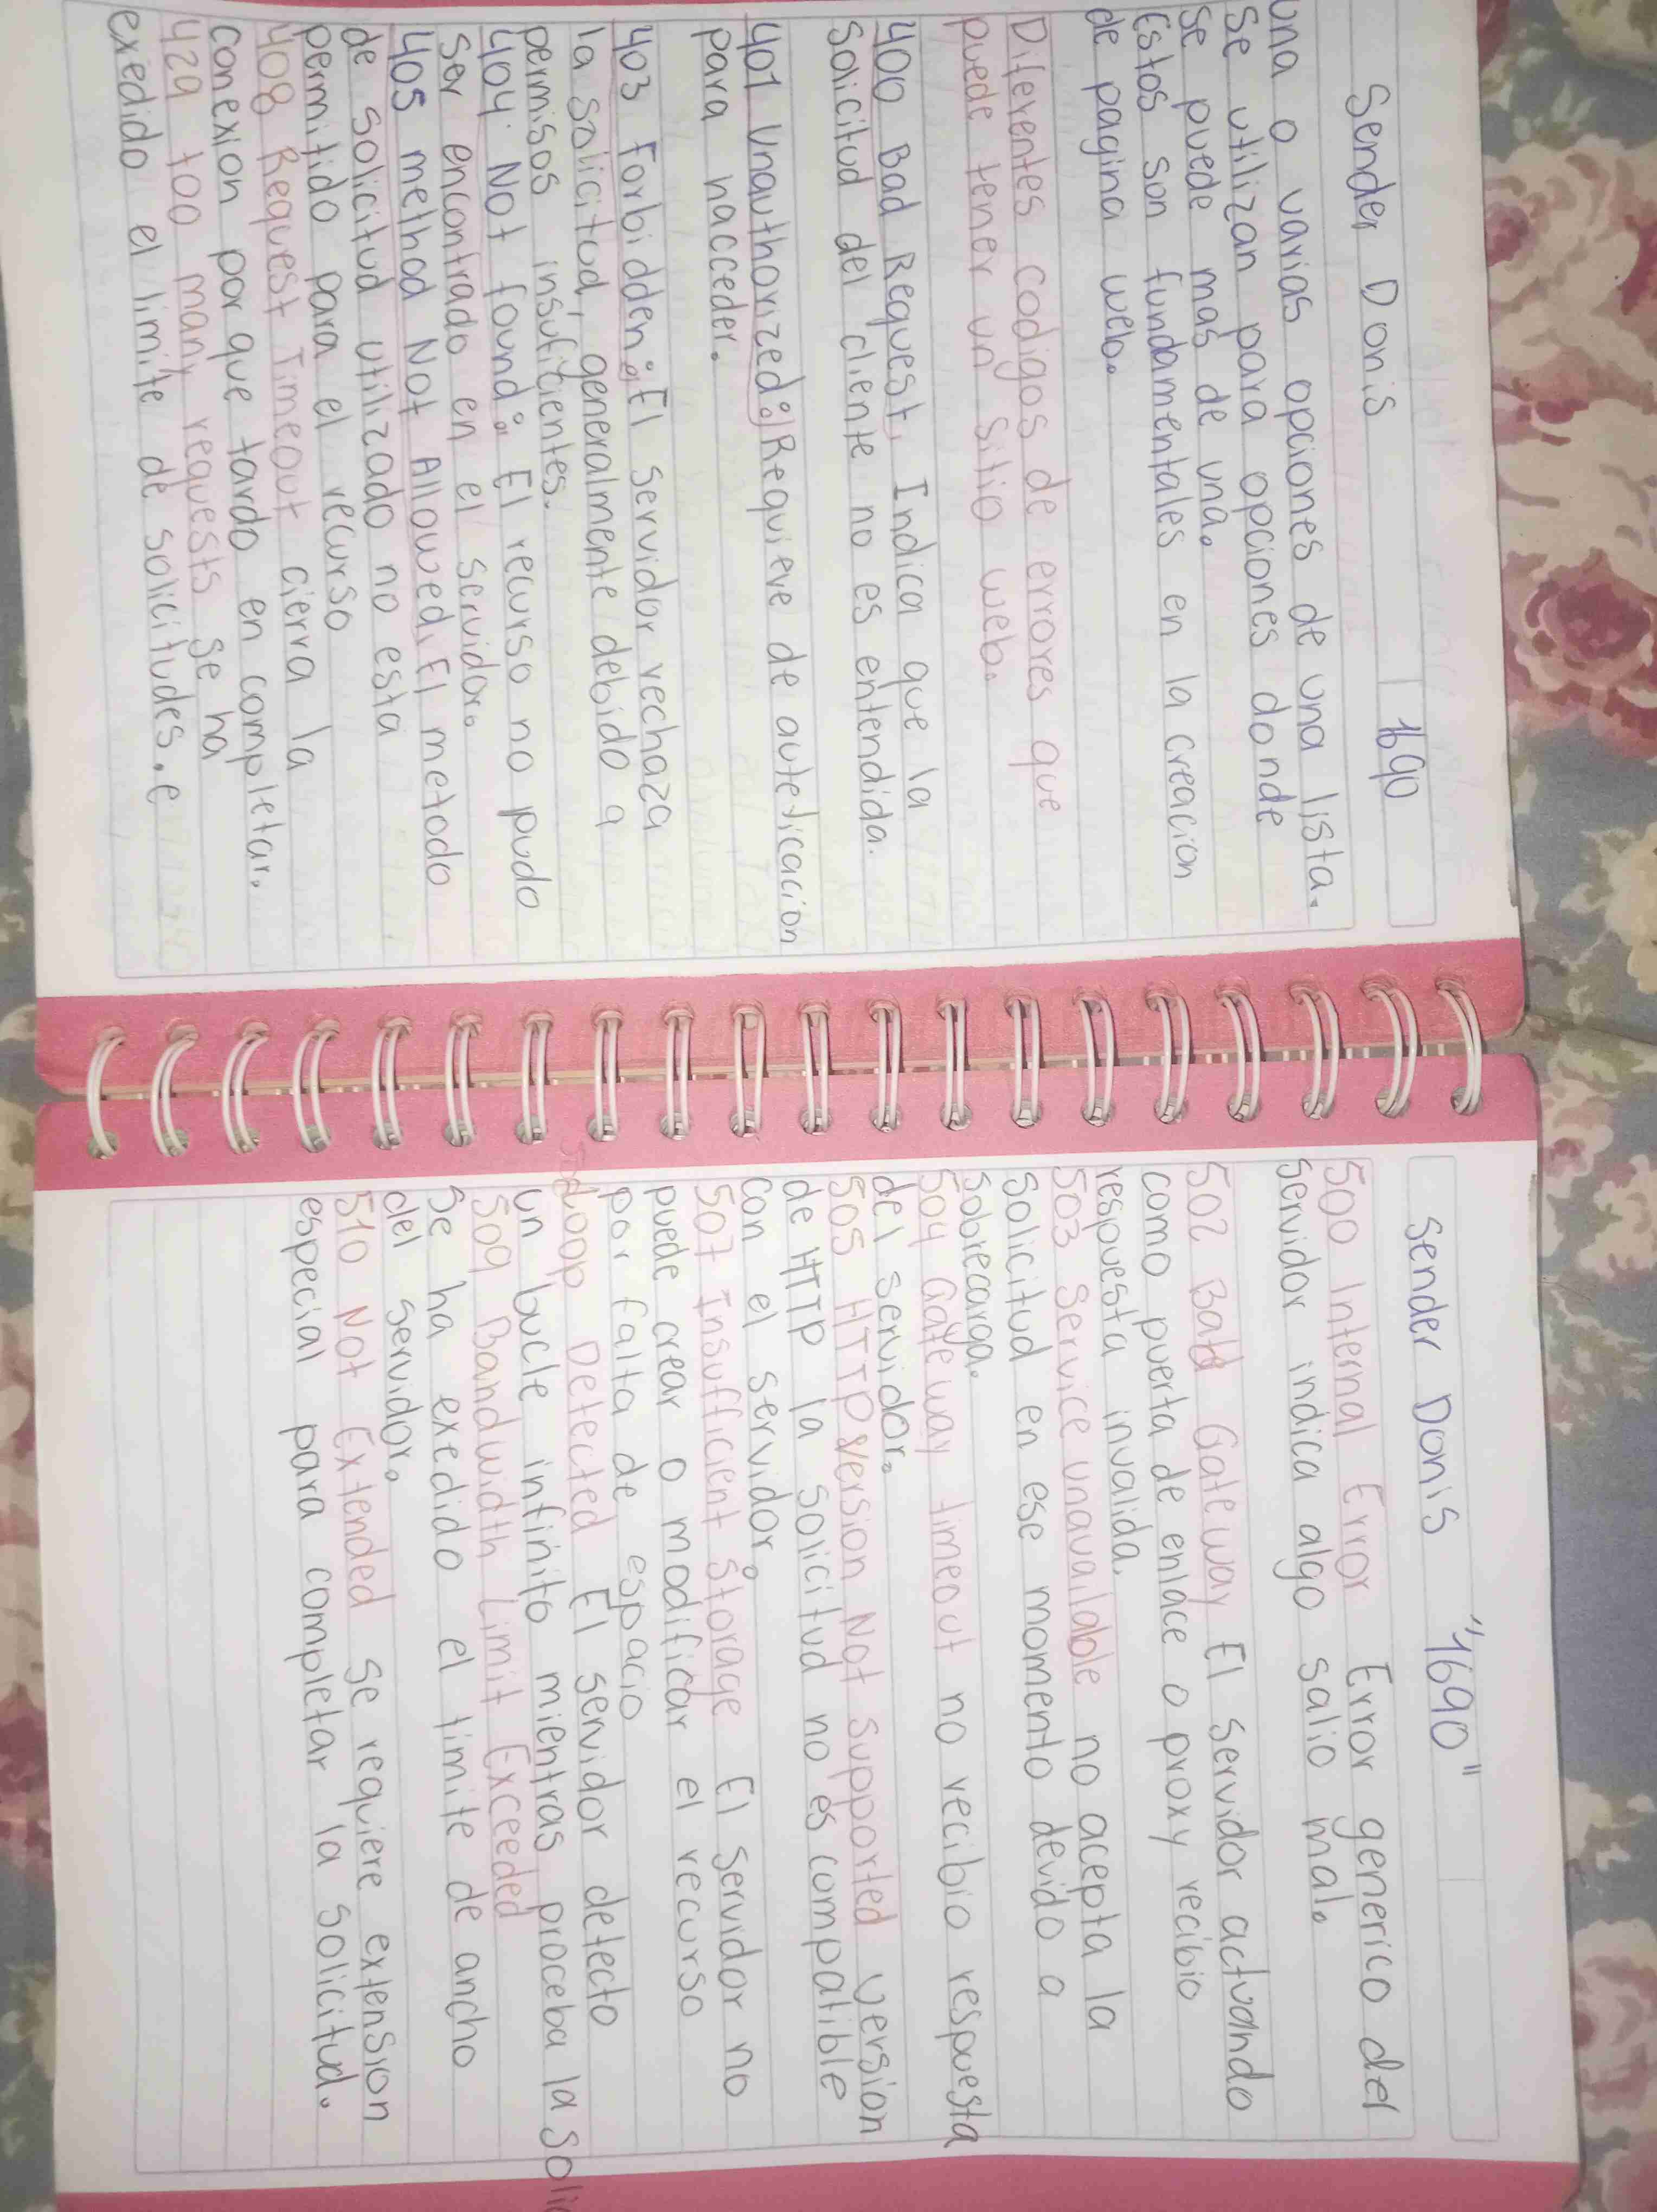 Sender Donis 1690
una o varias opciones de una lista.
Se utilizan para opciones donde
se puede mas de una.
Estos son fundamentales en la creacion
de pagina web.
Diferentes codigos de errores que
puede tener un sitio web.
400 Bad Request, Indica que la
solicitud del cliente no es entendida.
401 Unauthorized: Requieve de auteticacion
para hacceder.
403 Forbidden: El servidor rechaza
la solicitud, generalmente debido a
permisos insuficientes.
404 Not found: El recurso no pudo
ser encontrado en el servidor.
405 method Not Allowed, El metodo
de solicitud utilizado no esta
permitido para el recurso
408 Request Timeout cierra la
conexion por que tardo en completar.
429 too many requests se ha
exedido el limite de solicitudes. e
Sender Donis "1690"
500 Internal Error Error generico del
servidor indica algo salio mal.
502 Bad Gateway El servidor actuando
como puerta de enlace o proxy recibio
respuesta invalida.
503 Service unavailable no acepta la
solicitud en ese momento devido a
sobrecarga.
504 Gateway timeout no recibio respuesta
del servidor.
505 HTTP version Not supported version
de HTTP la solicitud no es compatible
con el servidor.
507 Insufficient Storage El servidor no
puede crear o modificar el recurso
por falta de espacio
Loop Detected El servidor detecto
un bucle infinito mientras proceba la soli
509 Bandwidth Limit Exceeded
se ha exedido el limite de ancho
del servidor.
510 Not Extended se requiere extension
especial para completar la solicitud.